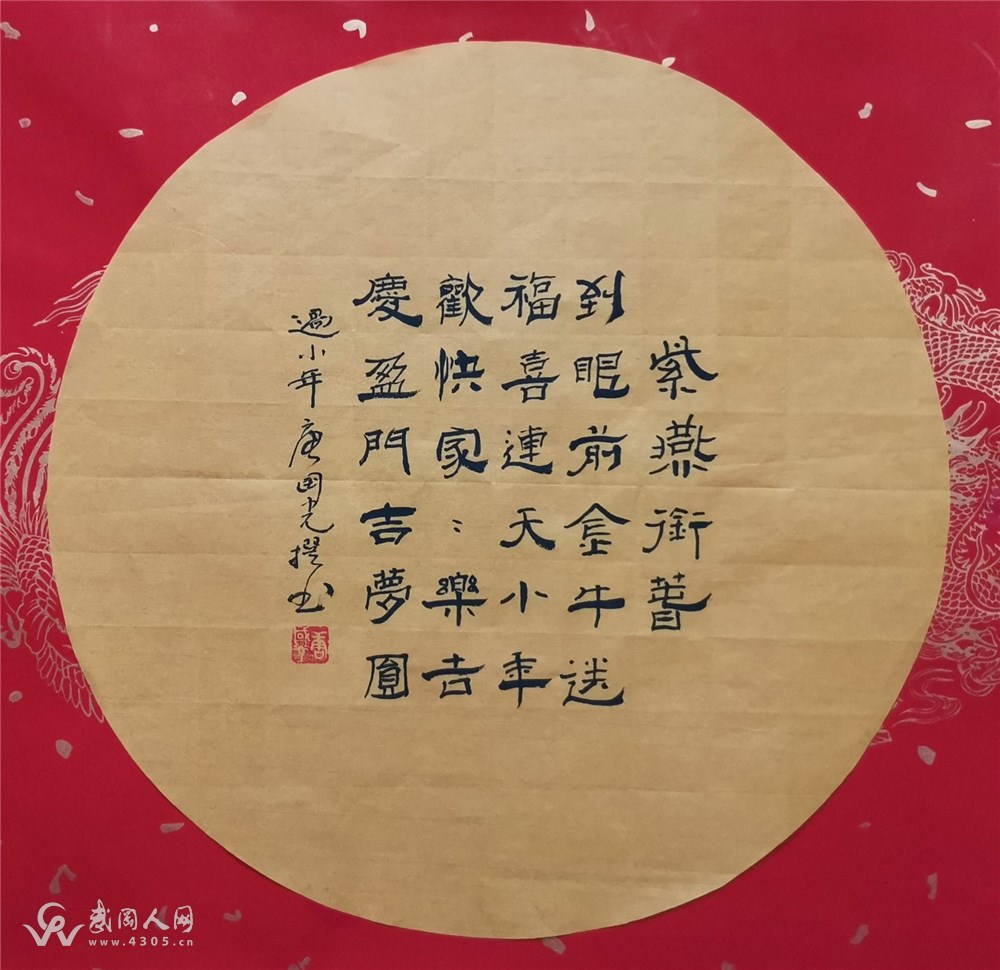 紫燕銜萅
到眼前金牛送
福喜連天小年
歡快家〻樂吉
慶盈門吉夢圓
過小年唐田光撰书
武冈人网
www.4305.cn